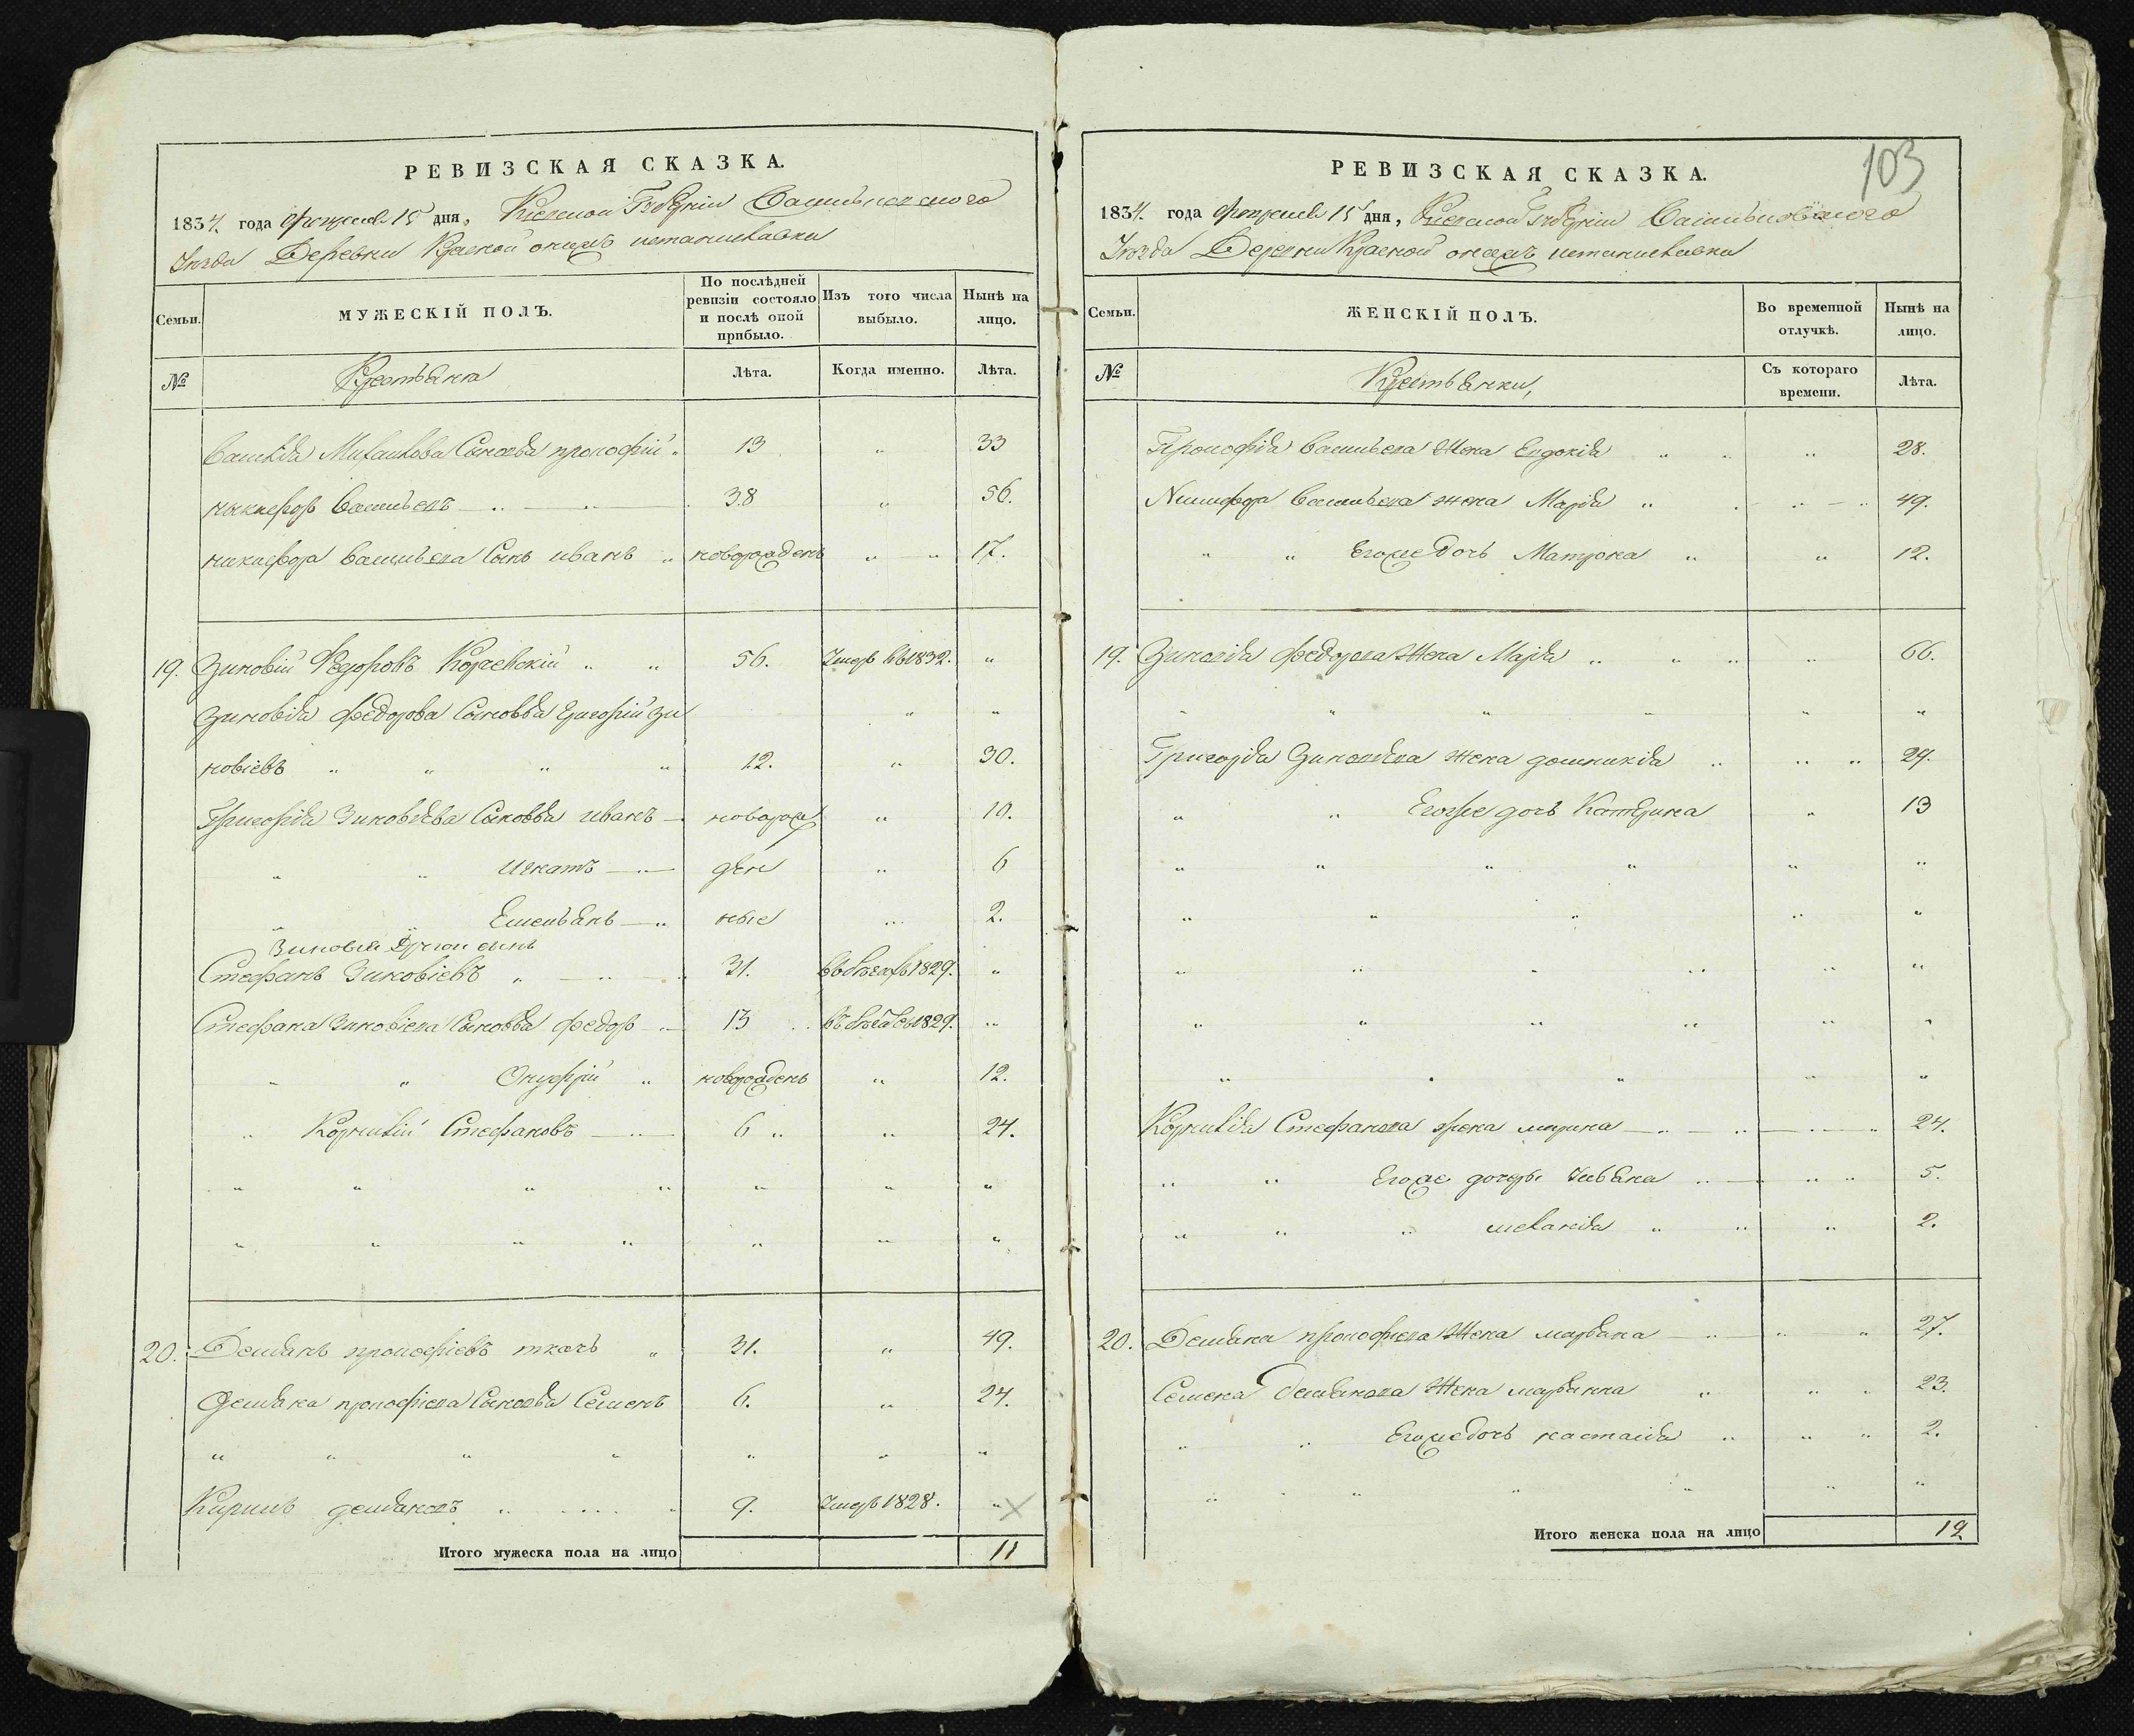 РЕВИЗСКАЯ СКАЗКА.
1834. года 15 дня, Киевской Губерніи Васильковского
Уѣзда Деревни Красной
Семьи. МУЖЕСКІЙ ПОЛЪ. По послѣдней ревизіи состояло и послѣ оной прибыло. Изъ того числа выбыло. Нынѣ на лицо.
№ Крестьяна Лѣта. Когда именно. Лѣта.
Михайлова Сыновья прокофій 13 " 33
Васильевъ 38 " 56.
Васильева Сынъ иванъ новорожденъ " 17.
19. Зиновій Федоровъ 56. Умеръ въ 1832. "
Зиновія федорова Сыновья Григорій зи " "
новіевъ 12. " 30.
Григорія Зиновіева Сыновья иванъ новорож " 10.
игнатъ ден " 6
Емельянъ ные " 2.
Зиновія Другой сынъ
Стефанъ Зиновіевъ 31. 1829. "
Стефана Зиновіева Сыновья федоръ 13 1829. "
Онуфрій новорожденъ " 12.
Корнилій Стефановъ 6 " 24.
20. Демьянъ прокофіевъ ткачъ 31. " 49.
Демьяна прокофіева Сыновья Семенъ 6. " 24.
Кирилъ демьяновъ 9. Умеръ 1828. "
Итого мужеска пола на лицо 11
103
РЕВИЗСКАЯ СКАЗКА.
1834. года 15 дня, Киевской Губерніи Васильковского
Уѣзда Деревни Красной
Семьи. ЖЕНСКІЙ ПОЛЪ. Во временной отлучкѣ. Нынѣ на лицо.
№ Крестьянки, Съ котораго времени. Лѣта.
Прокофія Васильева Жена Евдокія " 28.
Никифора Васильева жена Марья " 49.
" " Егоже дочь Матрона " 12.
19. Зиновія федорова Жена Марья " 66.
Григорія Зиновіева жена домникія " 29.
" " Егоже дочь Катерина " 13
Корнилія Стефанова жена марина 24.
" " Егоже дочери Ульяна " 5.
" " меланія " 2.
20. Демьяна прокофіева Жена 27.
Семена Демьянова Жена 23.
" " Егоже дочь настасія " 2.
Итого женска пола на лицо 12